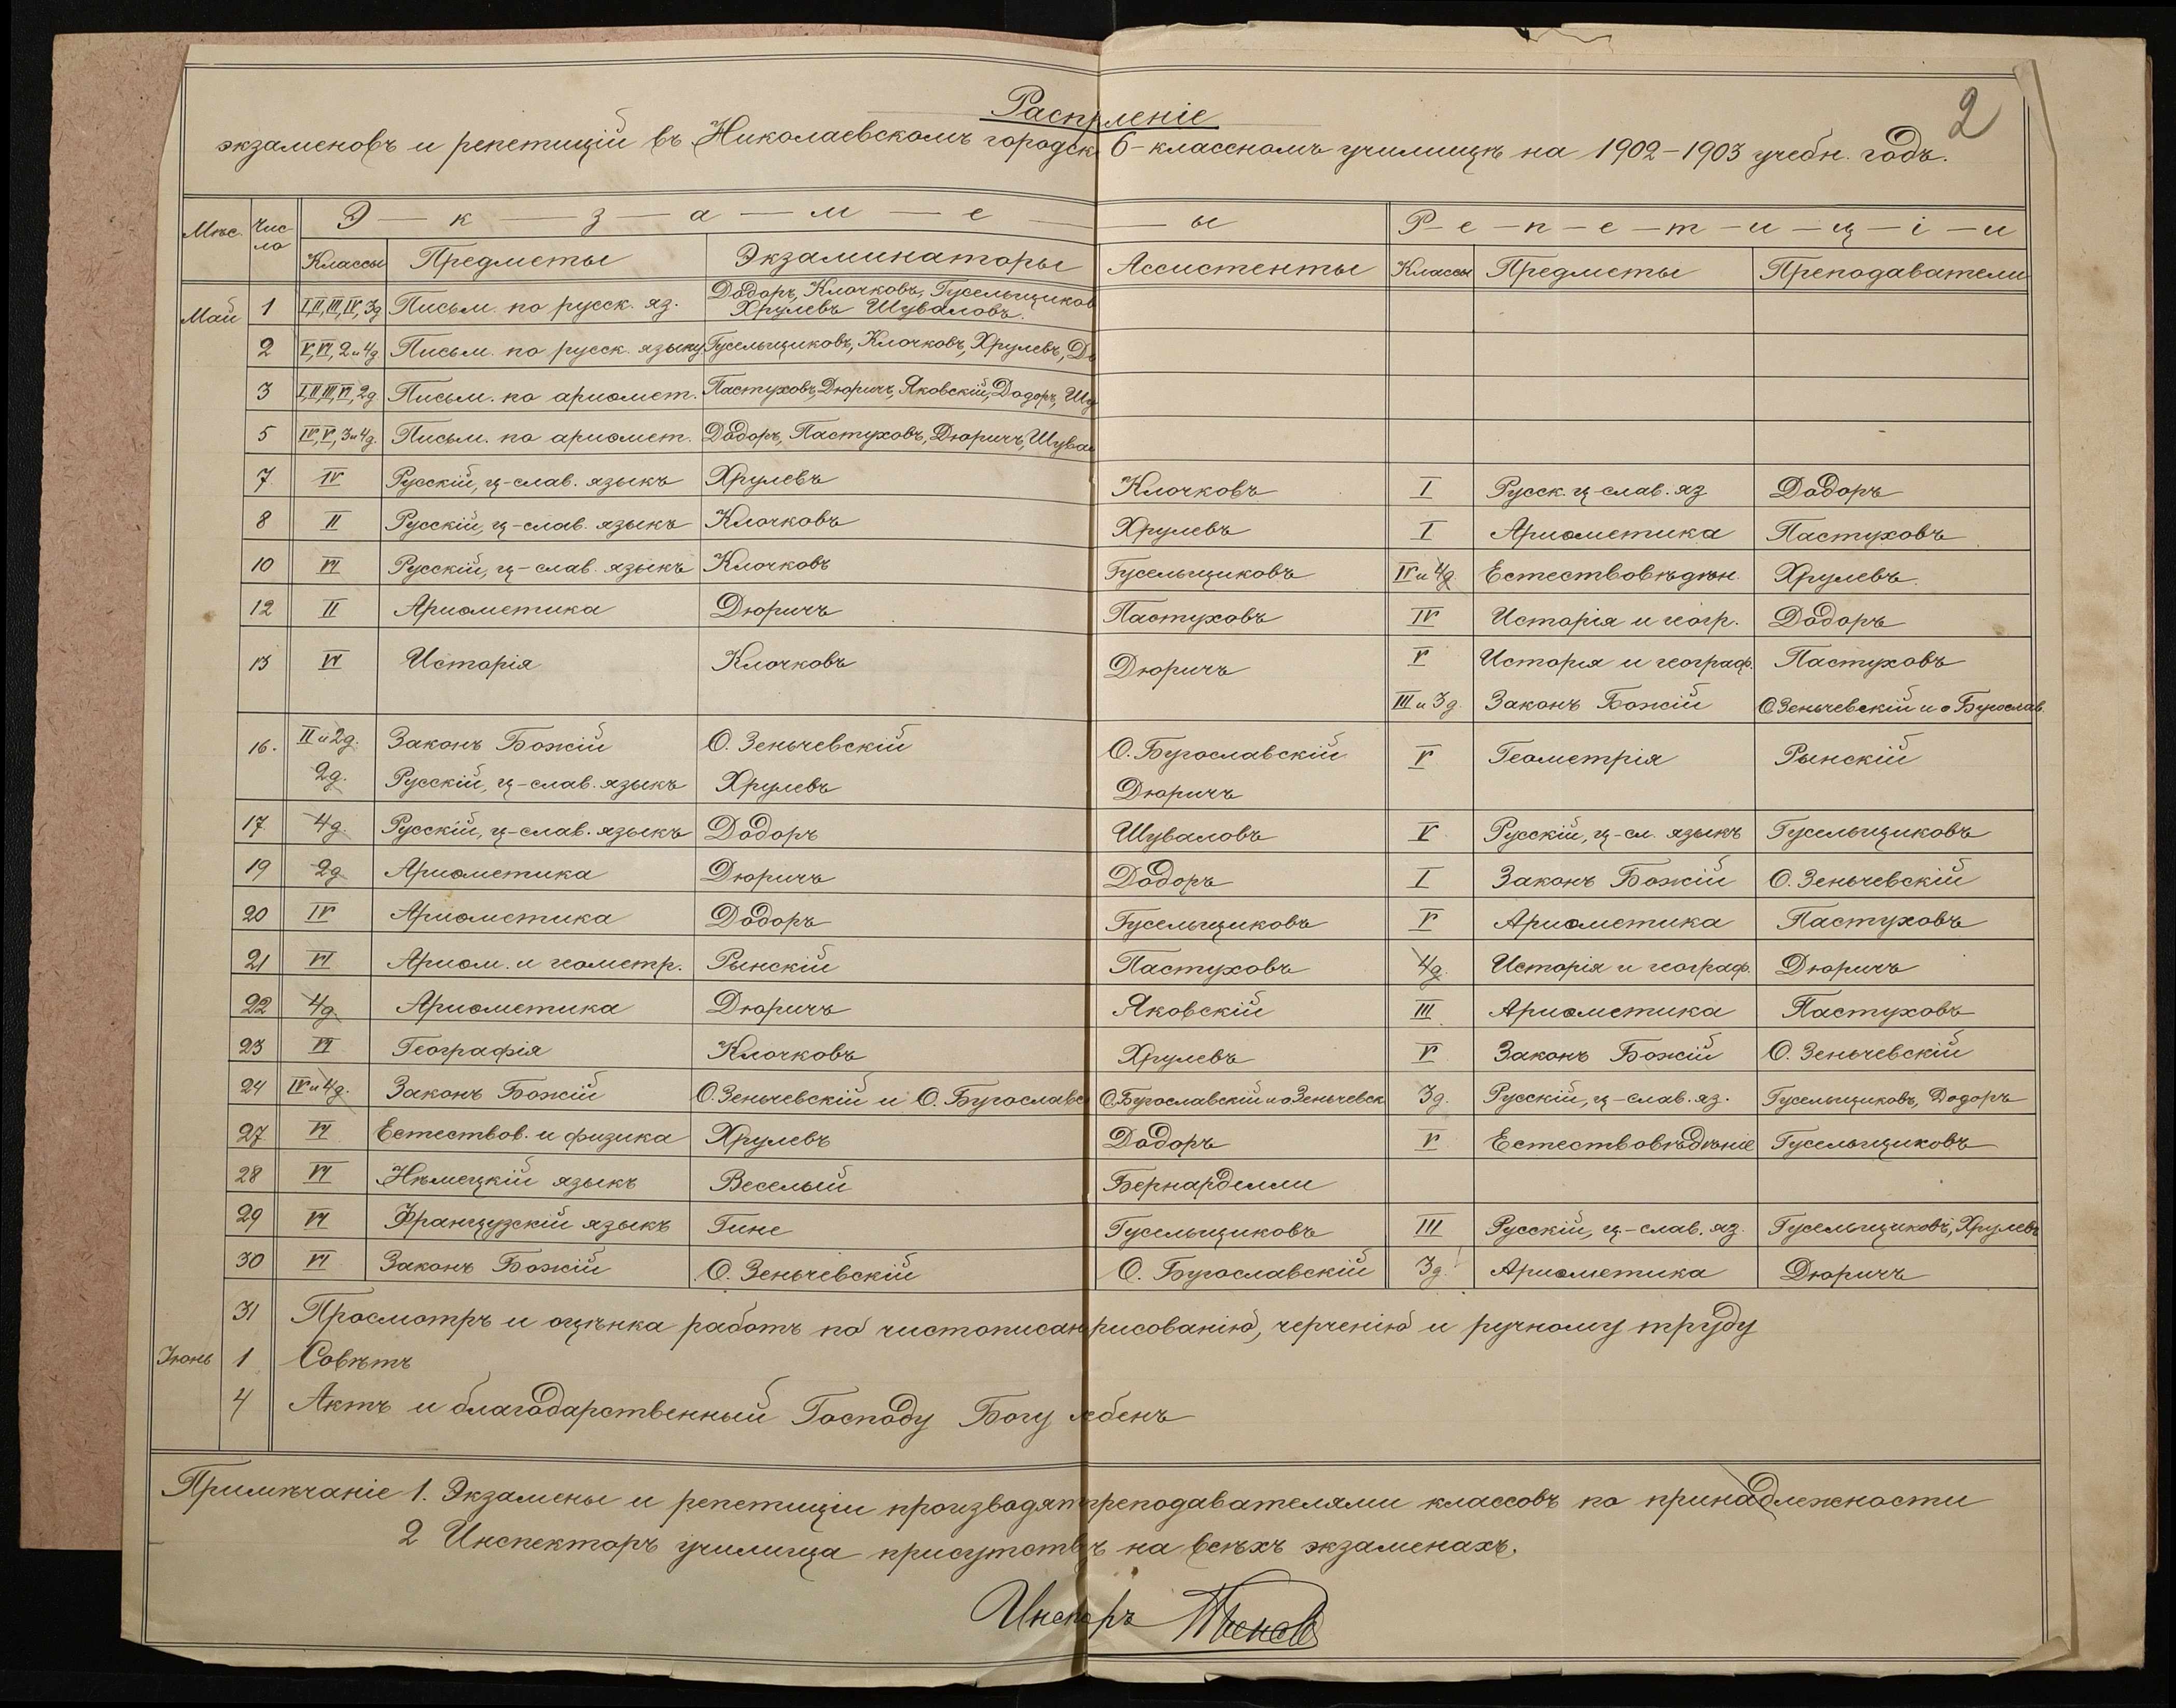 2
экзаменовъ и репетицій въ Николаевскомъ городск. 6-классномъ училищѣ на 1902-1903 учебн. годъ.
Мѣс. Число Э-к-з-а-м-е ы Р-е-п-е-т-и-ц-і-и
Классы Предметы Экзаминаторы Ассистенты Классы Предметы Преподаватели
Май 1 I,II,III,IV,3д Письм. по русск. яз. Додоръ, Клочковъ, Гусельщиков
Хрулевъ Шуваловъ.
2 V,VI,2и4д Письм. по русск. языку Гусельщиковъ, Клочковъ, Хрулевъ, До
3 I,II,III,VI,2д Письм. по ариѳмет. Пастуховъ, Дюричъ, Яковскій, Додоръ, Шу
5 IV,V,3и4д. Письм. по ариѳмет. Додоръ, Пастуховъ, Дюричъ, Шувал
7 IV Русскій, ц-слав. языкъ Хрулевъ Клочковъ I Русск. ц-слав. яз Додоръ
8 II Русскій, ц-слав. языкъ Клочковъ Хрулевъ I Ариѳметика Пастуховъ
10 VI Русскій, ц-слав. языкъ Клочковъ Гусельщиковъ IV и 4д. Естествовѣдѣн. Хрулевъ.
12 II Ариѳметика Дюричъ Пастуховъ IV Исторія и геогр. Додоръ
13 VI Исторія Клочковъ Дюричъ V Исторія и географ. Пастуховъ
III и 3д. Законъ Божій О Зеньчевскій и о Бугослав.
16. II и 2д. Законъ Божій О. Зеньчевскій О. Бугославскій V Геометрія Рынскій
2д. Русскій, ц-слав. языкъ Хрулевъ Дюричъ
17 4д. Русскій, ц-слав. языкъ Додоръ Шуваловъ V Русскій, ц-сл. языкъ Гусельщиковъ
19 2д Ариѳметика Дюричъ Додоръ I Законъ Божій О. Зеньчевскій
20 IV Ариѳметика Додоръ Гусельщиковъ V Ариѳметика Пастуховъ
21 VI Ариѳм. и геометр. Рынскій Пастуховъ 4д. Исторія и географ. Дюричъ
22 4д. Ариѳметика Дюричъ Яковскій III Ариѳметика Пастуховъ
23 VI Географія Клочковъ Хрулевъ V Законъ Божій О. Зеньчевскій
24 IV и 4д. Законъ Божій О. Зеньчевскій и О. Бугославс О. Бугославскій и о Зеньчевск 3д. Русскій, ц-слав. яз. Гусельщиковъ, Додоръ
27 VI Естествов. и физика Хрулевъ Додоръ V Естествовѣдѣніе Гусельщиковъ
28 VI Нѣмецкій языкъ Веселый Бернарделли
29 VI Французскій языкъ Гине Гусельщиковъ III Русскій, ц-слав. яз. Гусельщиковъ, Хрулевъ
30 VI Законъ Божій О. Зеньчевскій О. Бугославскій 3д. Ариѳметика Дюричъ
31 Просмотръ и оцѣнка работъ по чистописан рисованію, черченію и ручному труду
Іюнь 1 Совѣтъ
4 Актъ и благодарственный Господу Богу ебенъ
Примѣчаніе 1. Экзамены и репетиціи производят преподавателями классовъ по принадлежности
2 Инспекторъ училища присутств ъ на всѣхъ экзаменахъ.